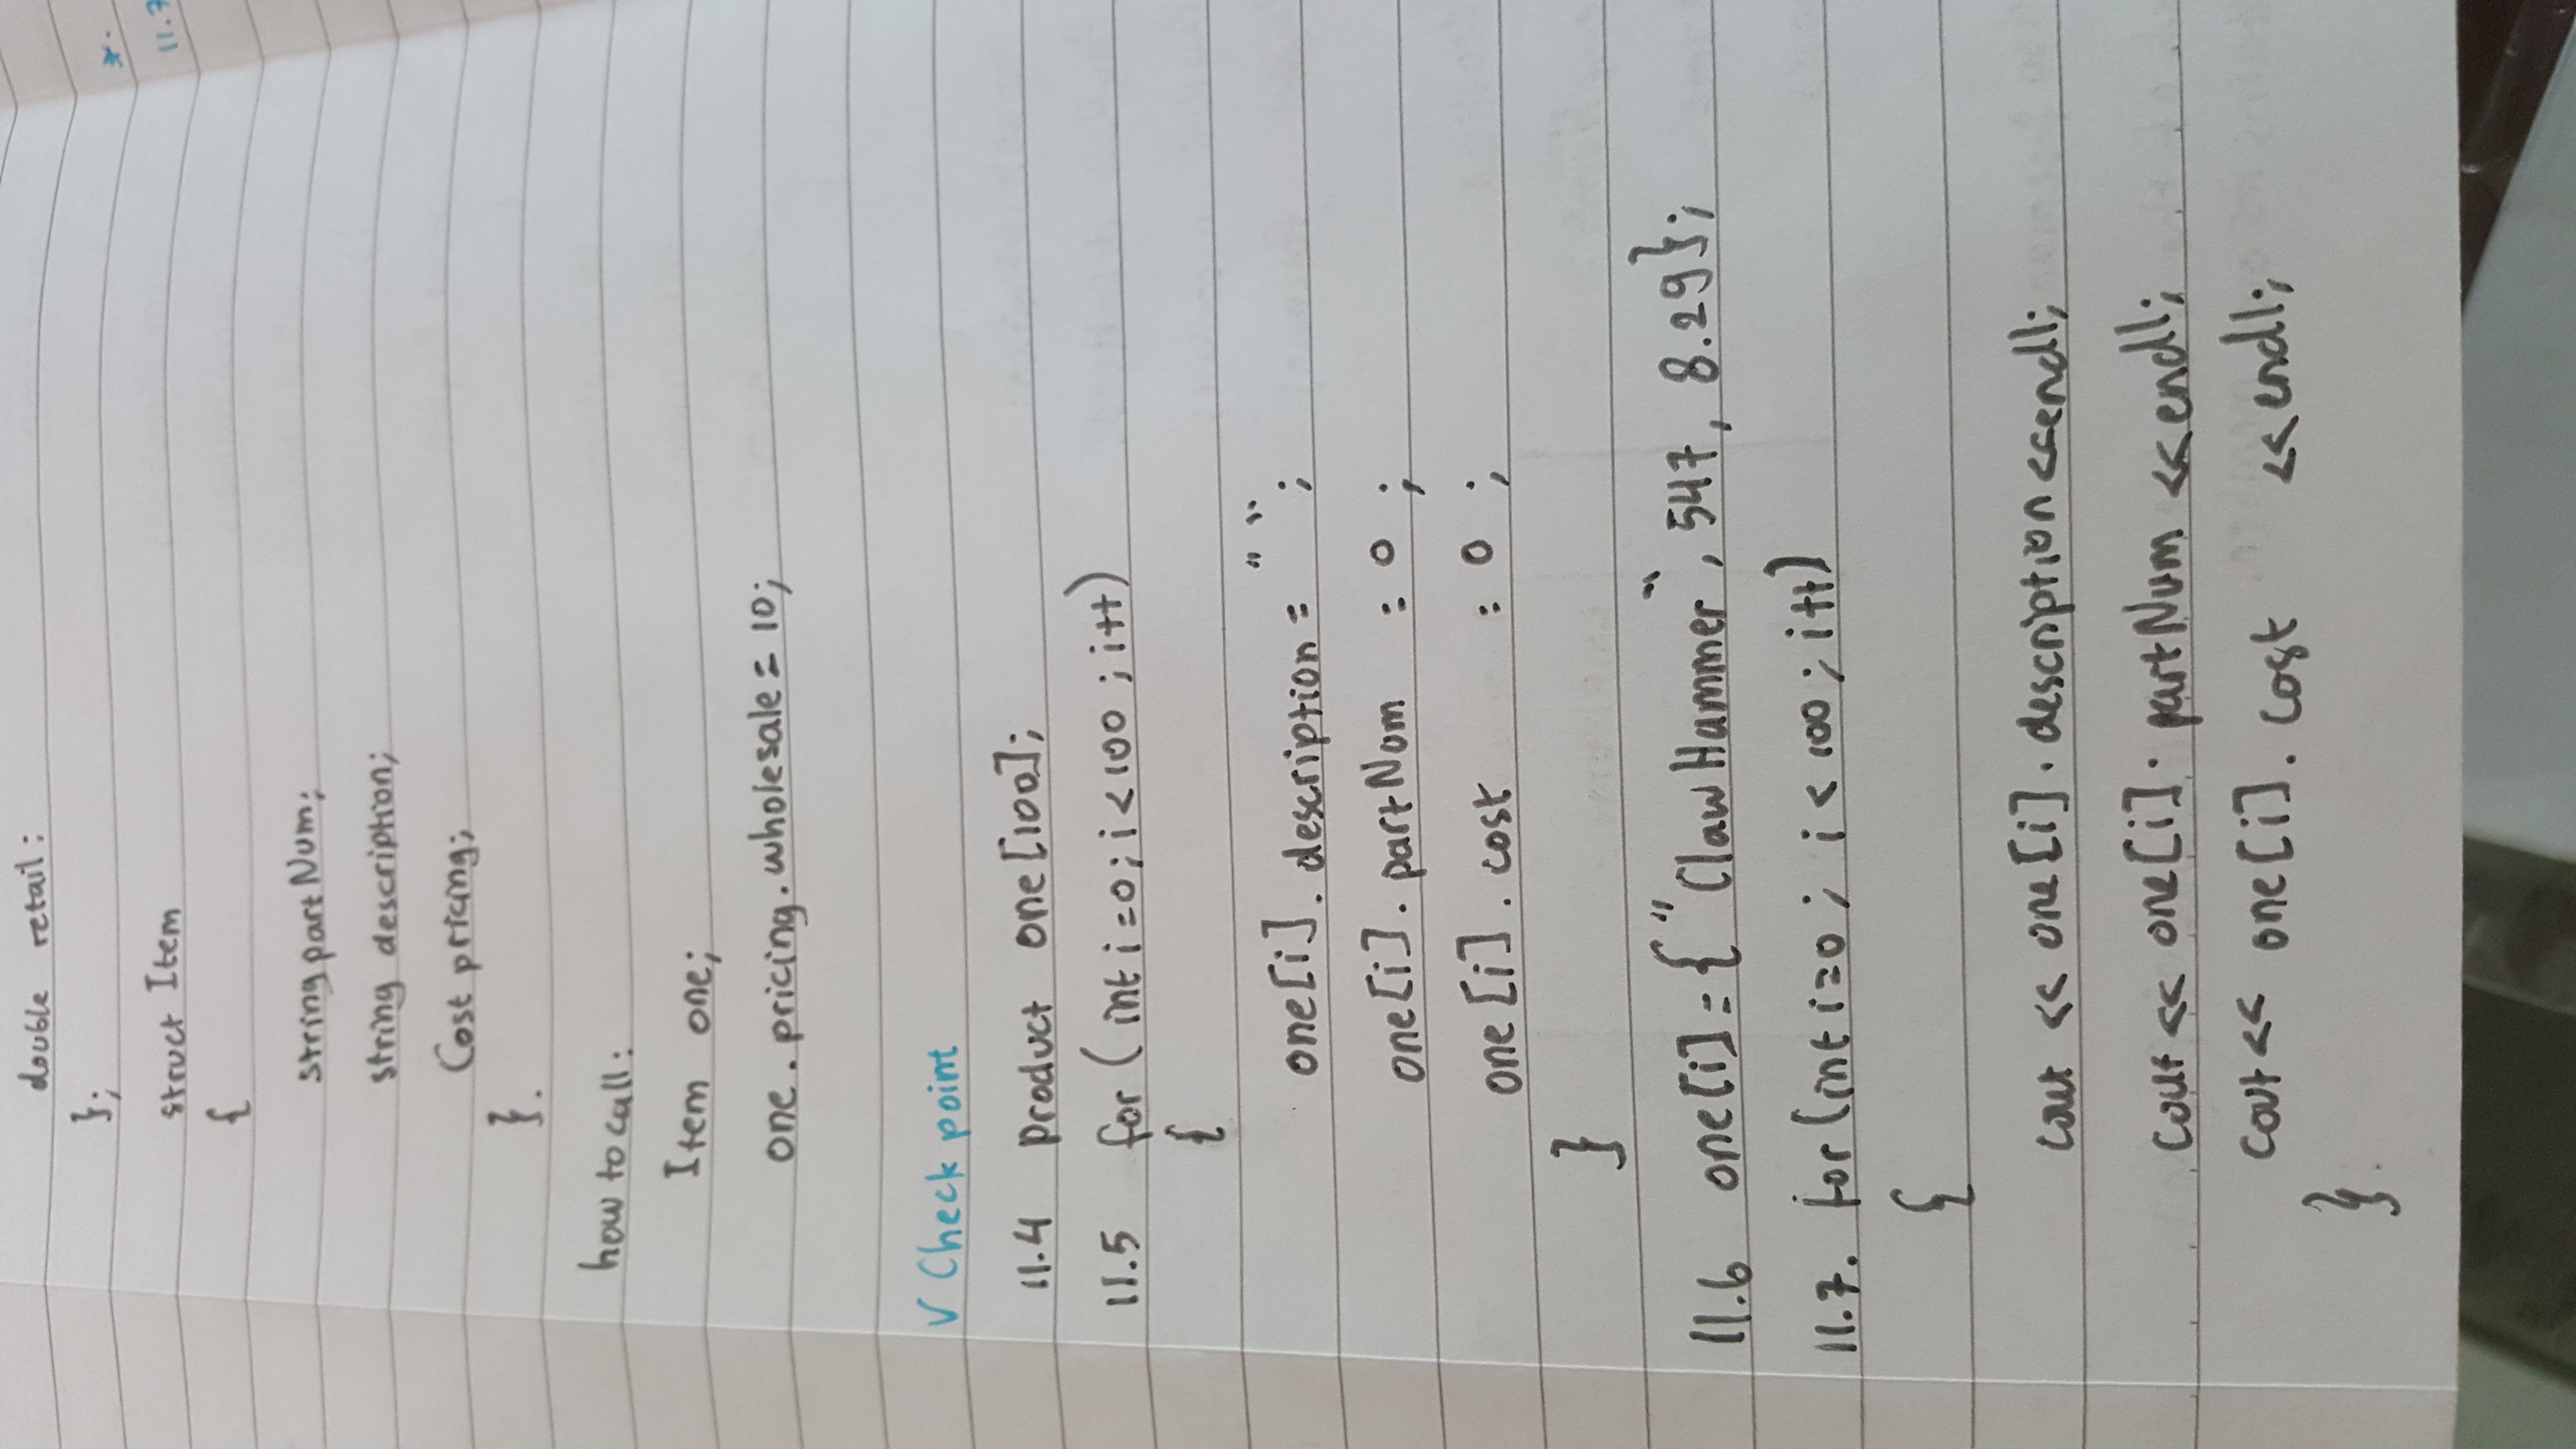 double retail:
};
struct Item
{
string partNum;
string description;
Cost pricing;
}.
how to call:
Item one;
one.pricing.wholesale = 10;
√ Check point
11.4 product one[100];
11.5 for (int i=0; i<100; i++)
{
one[i].description = " ";
one[i].partNom = 0 ;
one[i].cost = 0 ;
}
11.6 one[i]={"Claw Hammer", 547, 8.29};
11.7. for (int i=0; i<100; i++)
{
cout << one[i].description <<endl;
cout << one[i].partNum <<endl;
cout << one[i].cost <<endl;
}.
*.
11.7